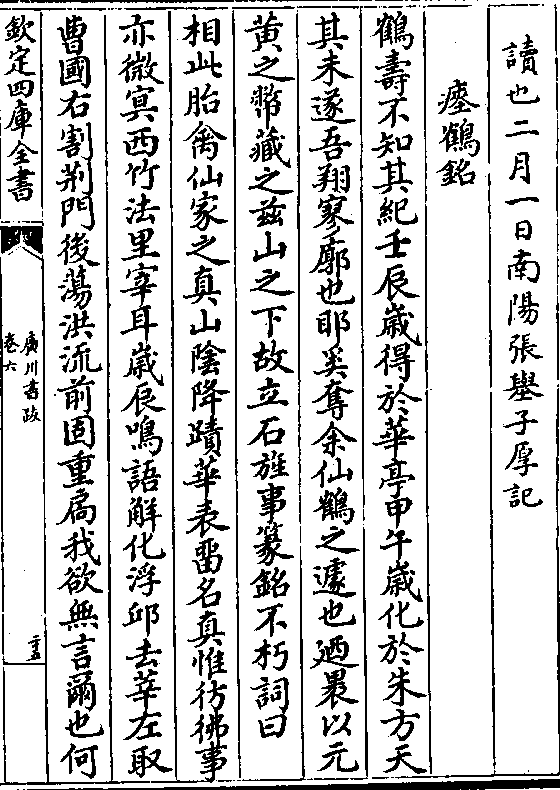 讀也二月一日南陽張壆子厚記
瘞鶴銘
鶴壽不知其紀壬辰歲得於華亭甲午歲化於朱方天
其未遂吾翔寥廓也耶奚奪余仙鶴之遽也廼裹以元
黄之幣藏之兹山之下故立石旌事篆銘不朽詞曰
相此胎禽仙家之真山陰降蹟華表畱名真惟彷彿事
亦微冥西竹法里宰耳歲辰鳴語解化浮邱去莘左取
曹國右割荆門後蕩洪流前固重扃我欲無言爾也何
欽定四庫全書
廣川書跋
卷六
二十五